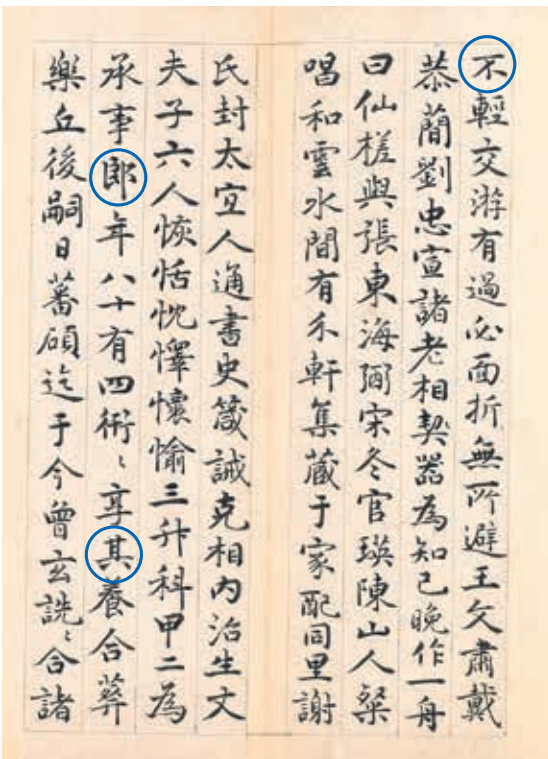 不輕交游有過必面折無所避王文肅戴
恭簡劉忠宣諸老相契器為知己晚作一舟
曰仙槎與張東海弼宋冬官瑛陳山人粲
唱和雲水間有禾軒集藏于家配同里謝
氏封太宜人通書史箴誡克相內治生丈
夫子六人恢恬忱懌懷愉三升科甲二為
承事郎年八十有四衎〻享其養合葬
樂丘後嗣日蕃碩迄于今曾玄詵〻合諸